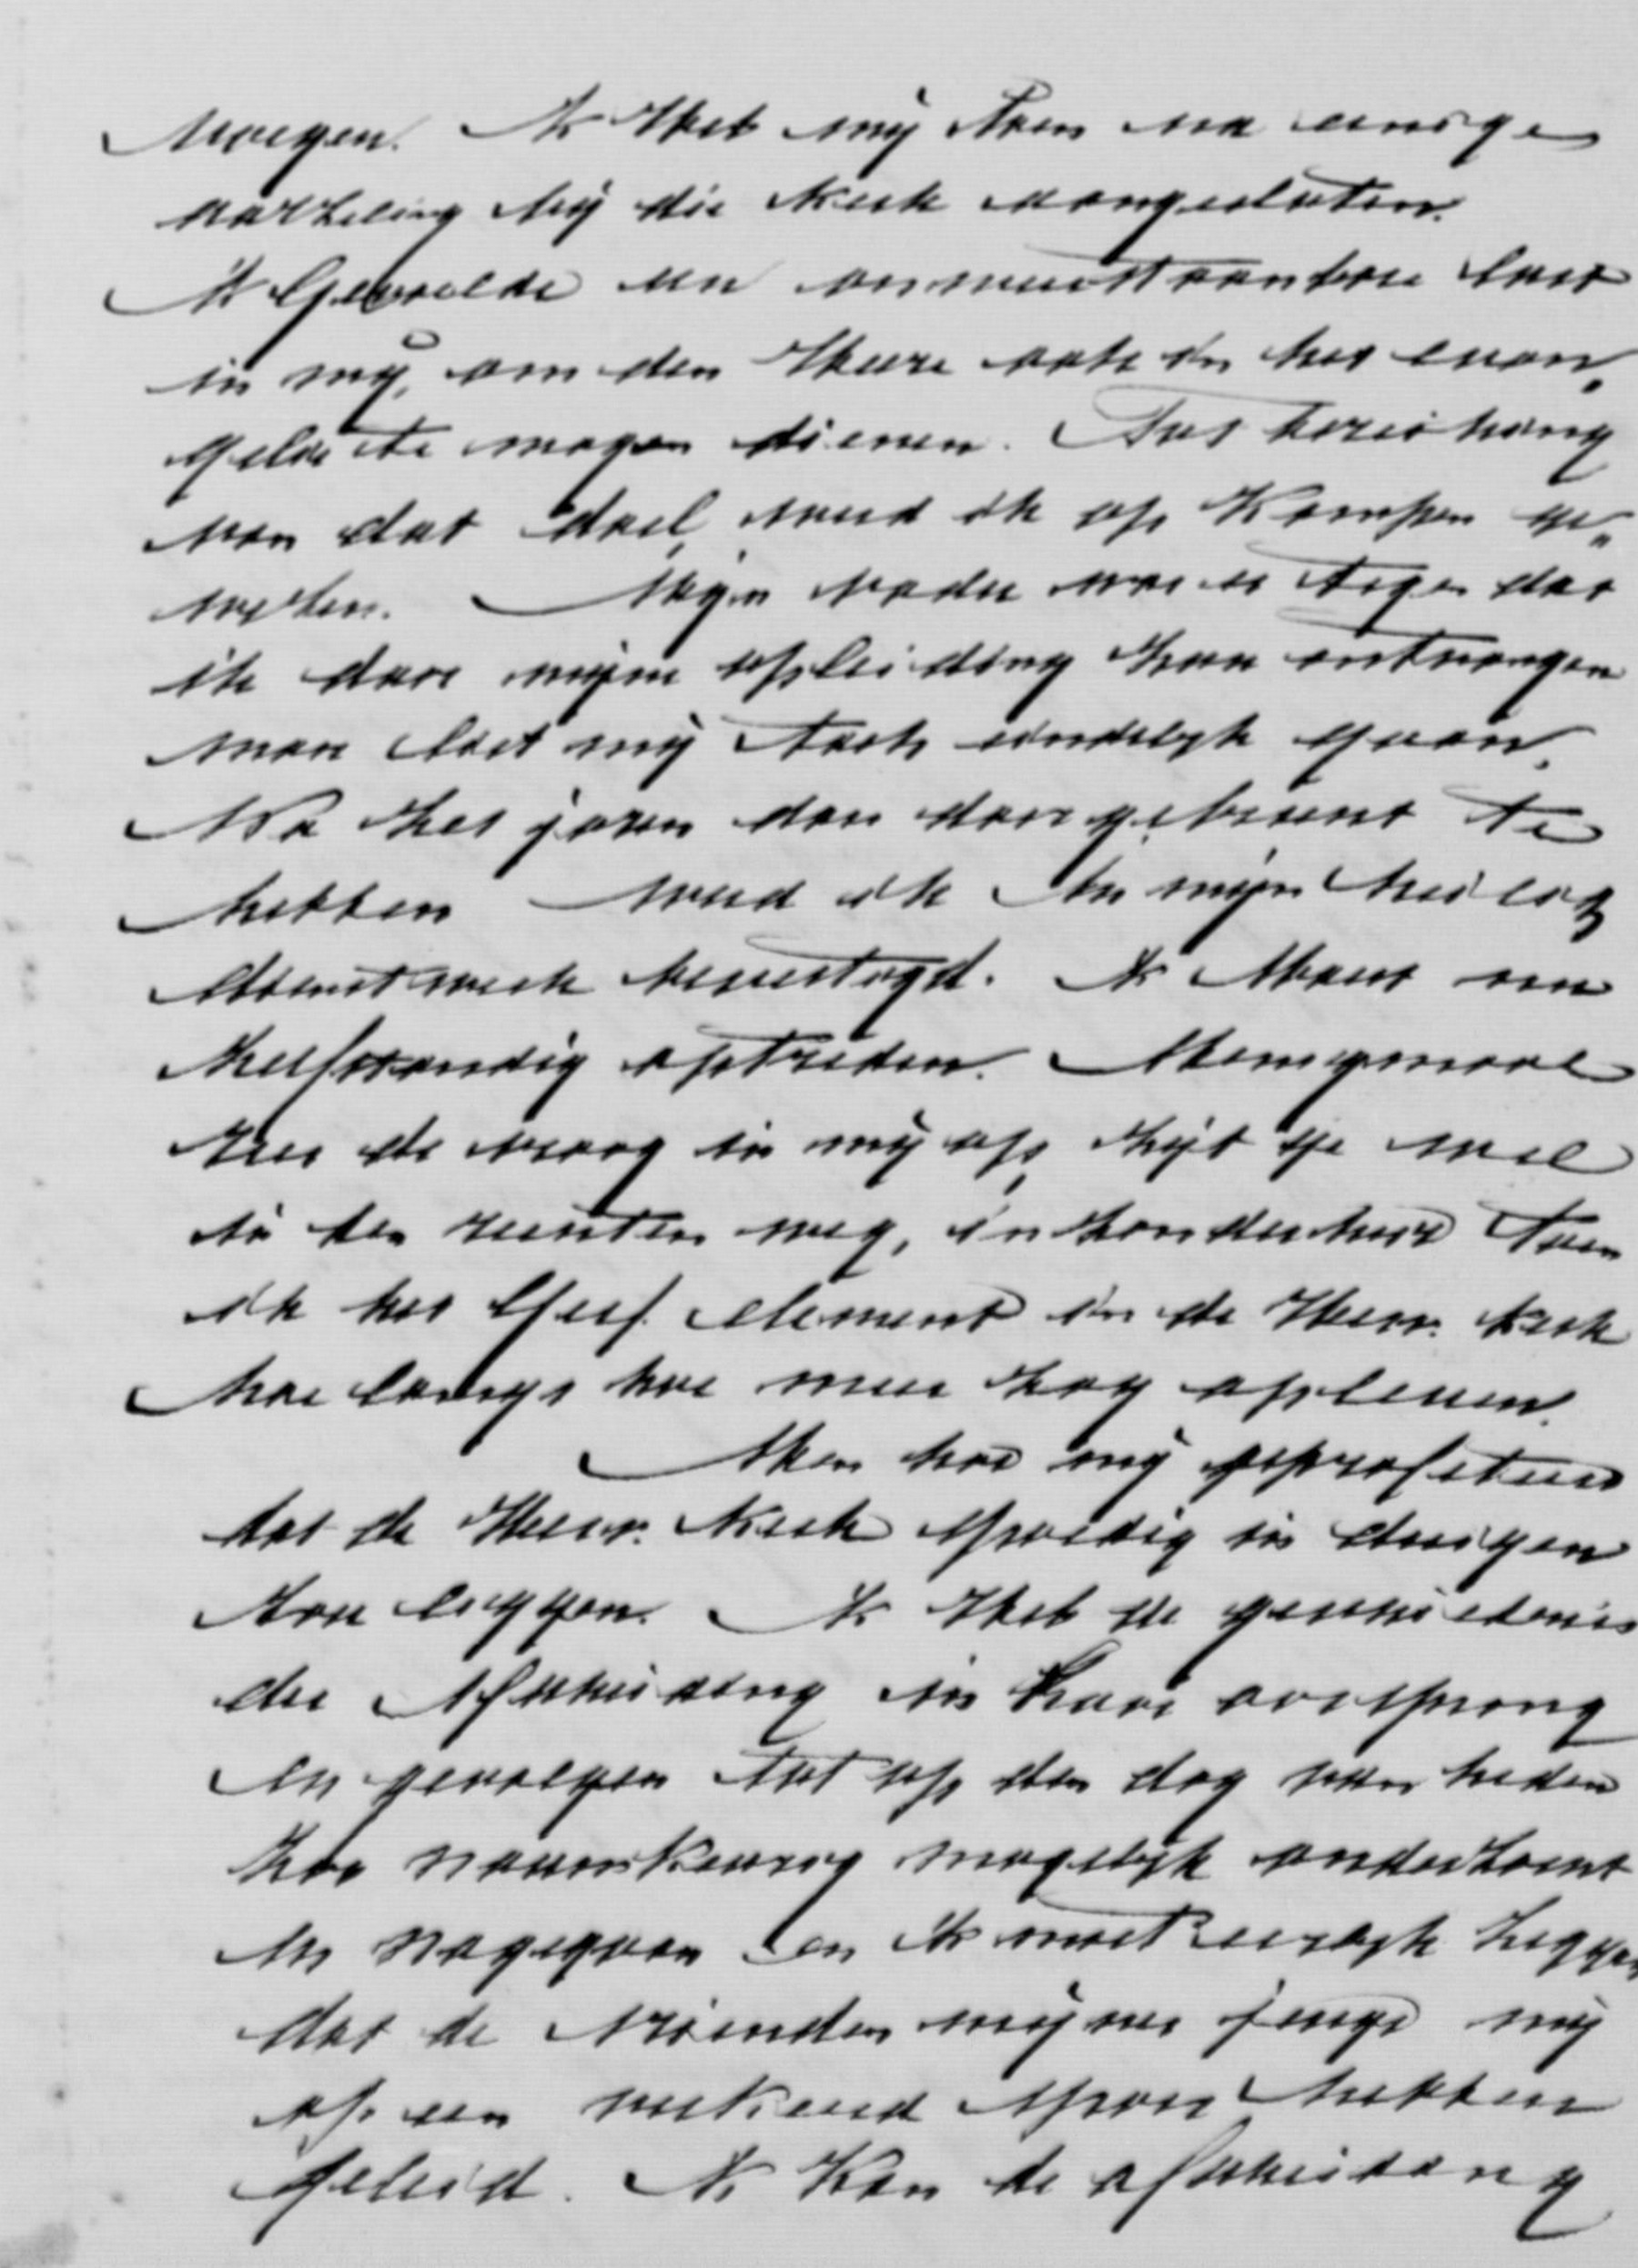 wegen. Ik Heb mij toen na eenige
aarzeling bij die Kerk aangesloten.
Ik Gevoelde een onweerstaanbare lust
in mij, om den Heere ook in het evan„
gelie te mogen dienen. Tot bereiking
van dat doel, werd ik op Kampen ge„
wezen. Mijn vader was er tegen dat
ik daar mijne opleiding zou ontvangen
maar liet mij toch eindelijk gaan.
Na zes jaren daar doorgebracht te
hebben werd ik in mijn heilig
dienstwerk bevestigd. Ik Moest nu
zelfstandig optreden. Menigmaal
rees de vraag in mij op, zijt ge wel
in den rechten weg, inzonderheid toen
ik het Geref. element in de Herv. Kerk
hoe langs hoe meer zag opleven.
Men had mij geprofeteerd
dat de Herv. Kerk spoedig in duigen
zou liggen. Ik Heb de geschiedenis
der Afscheiding in haar oorsprong
en gevolgen tot op den dag van heden
zoo nauwkeurig mogelijk onderzocht
en nagegaan en ik moet eerlijk zeggen
dat de vrienden mijner jeugd mij
op een verkeerd spoor hebben
geleid. Ik Kan de afscheiding